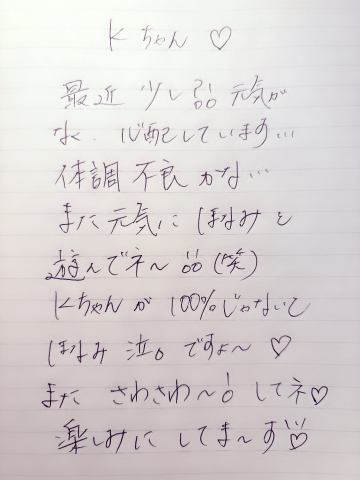 Kちゃん ♡
最近 少し 元気が
なく、心配しています…
体調 不良 かな…
また 元気に ほなみと
遊んでネ〜 (笑)
Kちゃんが 100%じゃないと
ほなみ 泣。ですょ〜 ♡
また さわさわ〜! してネ♡
楽しみに してま〜す♡